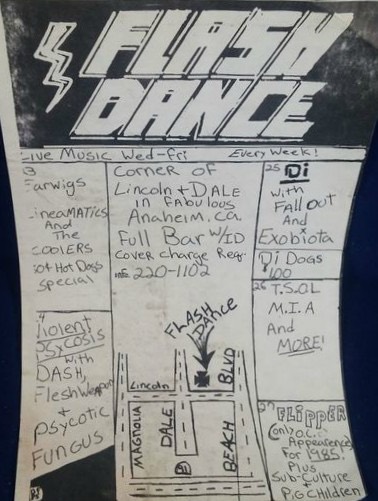 FLASH
DANCE
Live Music Wed-Fri Every Week!
Earwigs
CineaMATICS
And
The
COOLERS
50¢ Hot Dogs
Special
Violent
PSYCOSIS
with
DASH,
FleshWeapon
+
Psycotic
FUNGUS
Corner of
Lincoln + DALE
in Fabulous
Anaheim, ca.
Full Bar w/ID
Cover charge Req.
info 220-1102
FLASH
DANCE
Lincoln
MAGNOLIA
DALE
BEACH
BLVD
P
25 Di
with
Fall Out
And
Exobiota
Di Dogs
100
26 T.S.OL
M.I.A
And
MORE!
27 FLIPPER
(only O.C.
Appearence
for
1985!)
Plus
Sub-Culture
+
P.G. Children